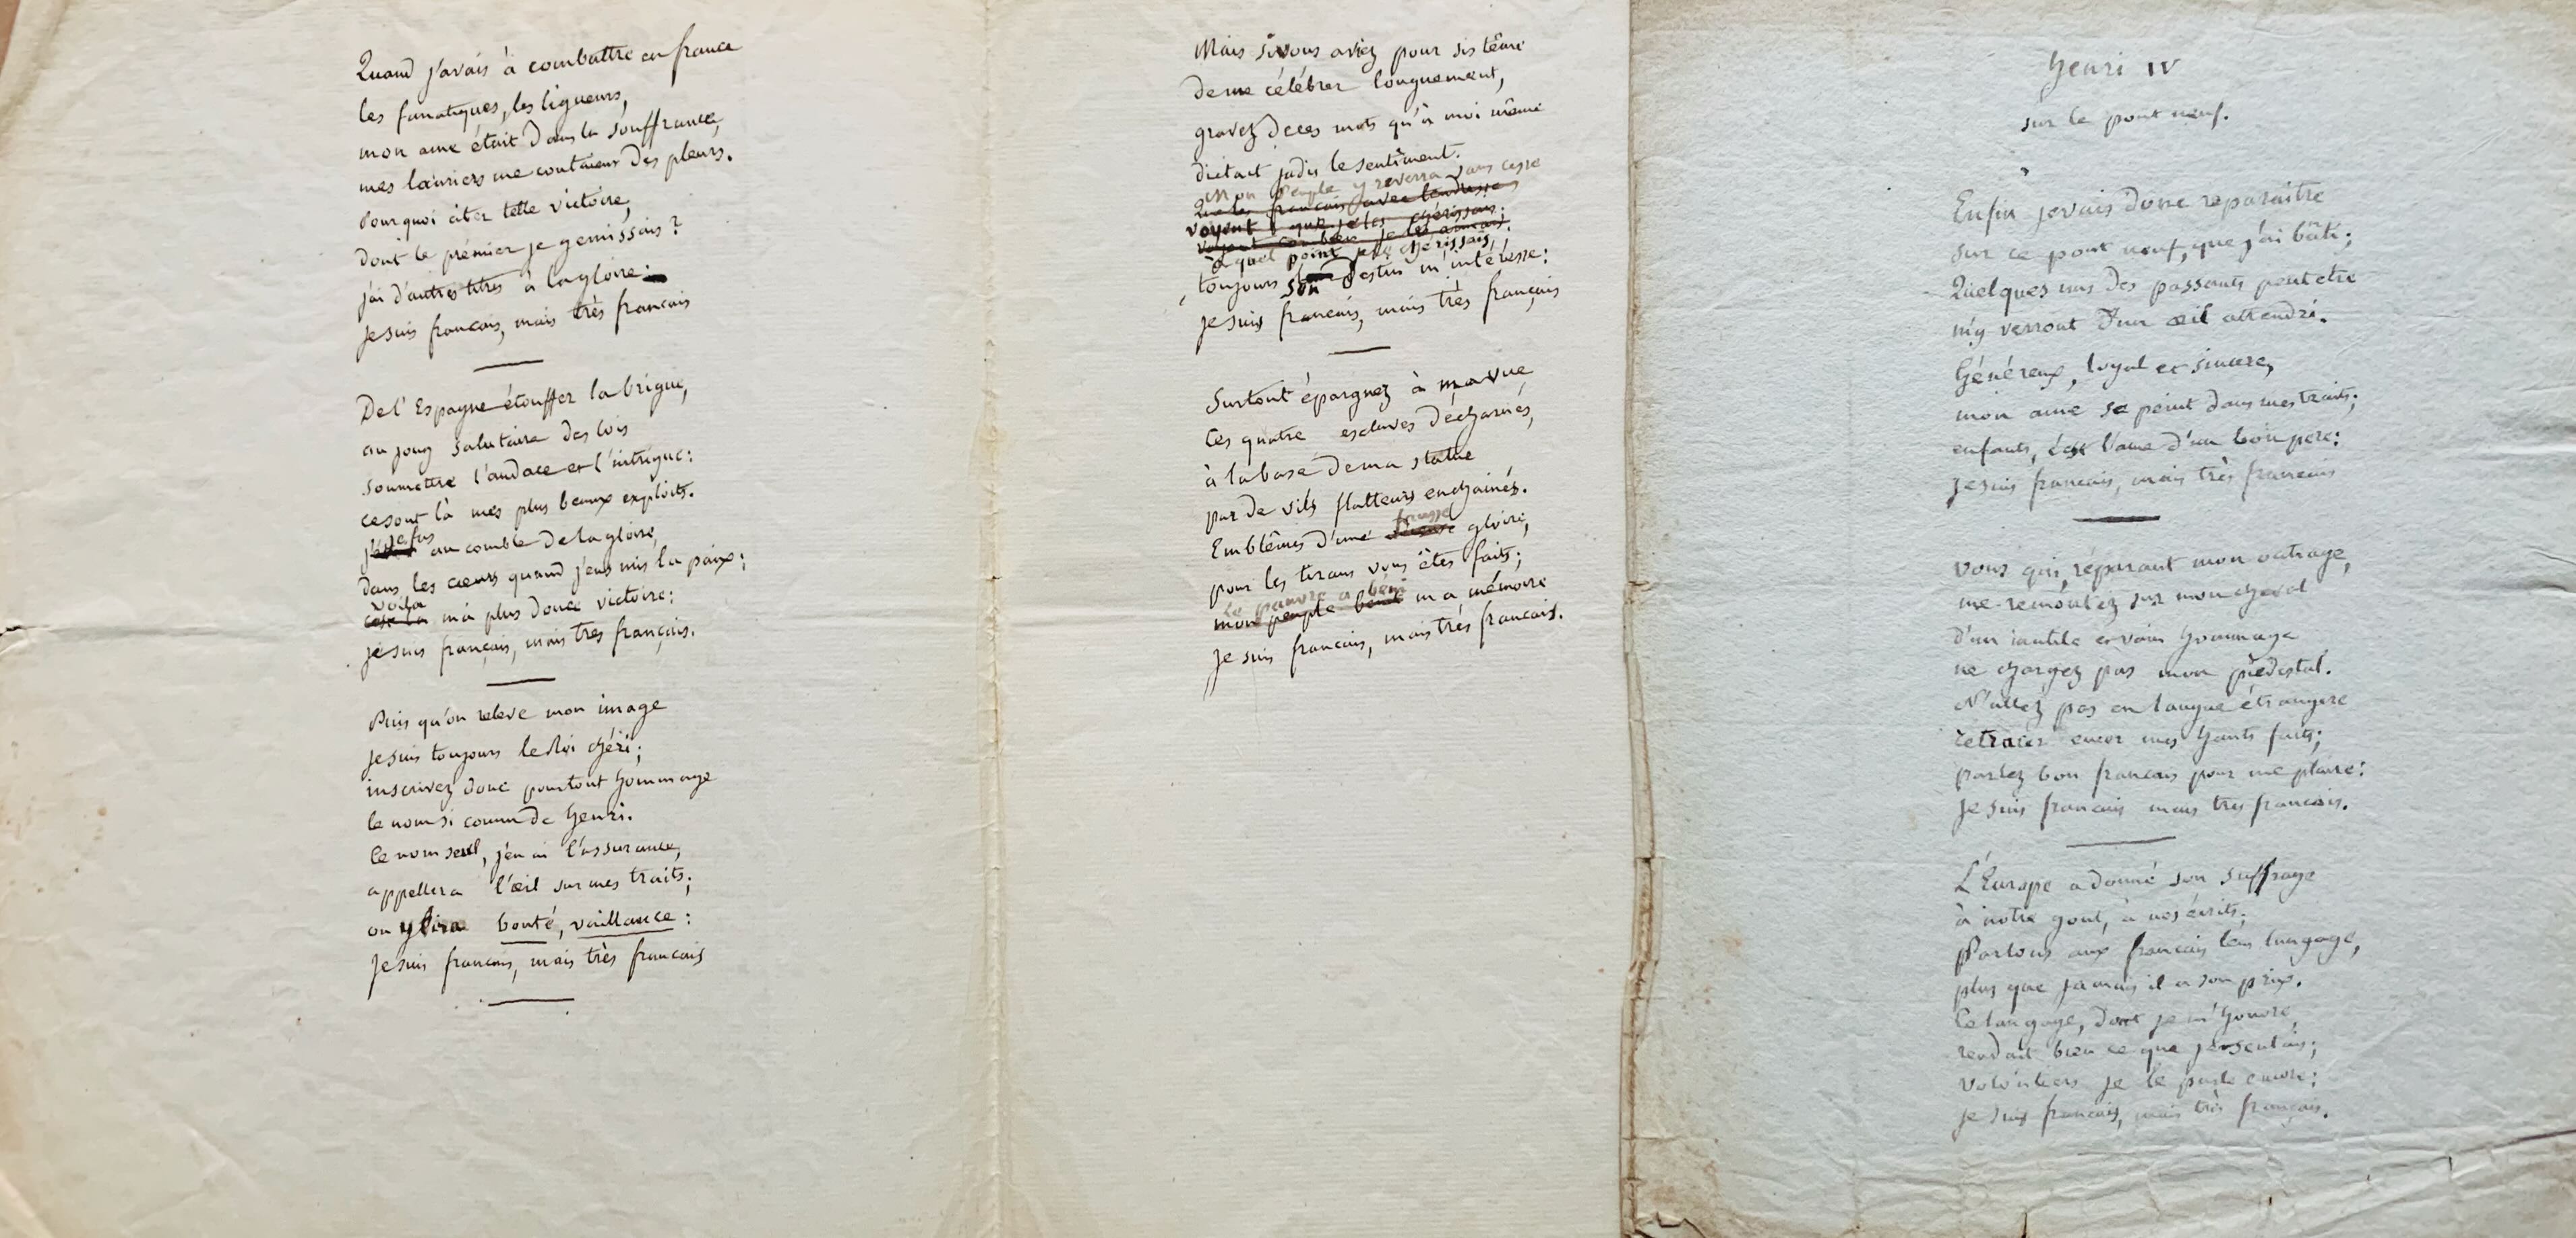 Quand j'avais à combattre en france
les fanatiques, les ligueurs,
mon ame était dans la souffrance,
mes lauriers me coutaient des pleurs.
Pourquoi citer telle victoire,
dont le prémier je gemissais?
j'ai d'autres titres à la gloire:
je suis francais, mais très francais
De l'Espagne étouffer la brigue,
au joug salutaire des lois
soumettre l'audace et l'intrigue:
ce sont là mes plus beaux exploits.
je fus
au comble de la gloire,
dans les cœurs quand j'eus mis la paix;
voila
c'est la ma plus douce victoire:
je suis français, mais tres français.
Puis qu'on releve mon image
je suis toujours le Roi chéri;
inscrivez donc pour tout hommage
le nom si connu de henri.
Ce nom seul, j'en ai l'assurance,
appellera l'œil sur mes traits;
on y lira bonté, vaillance:
je suis francais, mais très francais
Mais si vous aviez pour sistême
de me célébrer longuement,
gravez de ces mots qu'à moi même
dictait jadis le sentiment.
mon peuple y reverra sans cesse
Que les francais avec tendresse
voyent que je les chérissais;
voyent combien je les aimais,
à quel point je le chérissais,
toujours son destin m'intéresse:
je suis francais, mais très français
Surtout épargnez à ma vue
Ces quatre esclaves décharnés,
à la base de ma statue
par de vils flatteurs enchainés.
fausse
Emblêmes d'une gloire,
pour les tirans vous êtes faits;
Le pauvre a béni
mon peuple benit ma mémoire
je suis francais, mais très francais.
henri IV
sur le pont neuf.
Enfin je vais donc reparaitre
sur ce pont neuf, que j'ai bâti;
Quelques uns des passants peut etre
m'y verront d'un œil attendri.
Généreux, loyal et sincere,
mon ame se peint dans mes traits;
enfants, c'est l'ame d'un bon pere:
je suis francais, mais très francais
vous qui, réparant mon outrage,
me remontez sur mon cheval
d'un inutile et vain hommage
ne chargez pas mon piédestal.
N'allez pas en langue étrangere
retracer encor mes hauts faits;
parlez bon francais pour me plaire:
je suis francais mais tres francais.
L'Europe a donné son suffrage
à notre gout, à nos écrits;
Parlons aux francais leur langage,
plus que jamais il a son prix.
Ce langage, dont je m'honore,
rendait bien ce que je sentais;
volontiers je le parle encore;
je suis francais, mais très français.